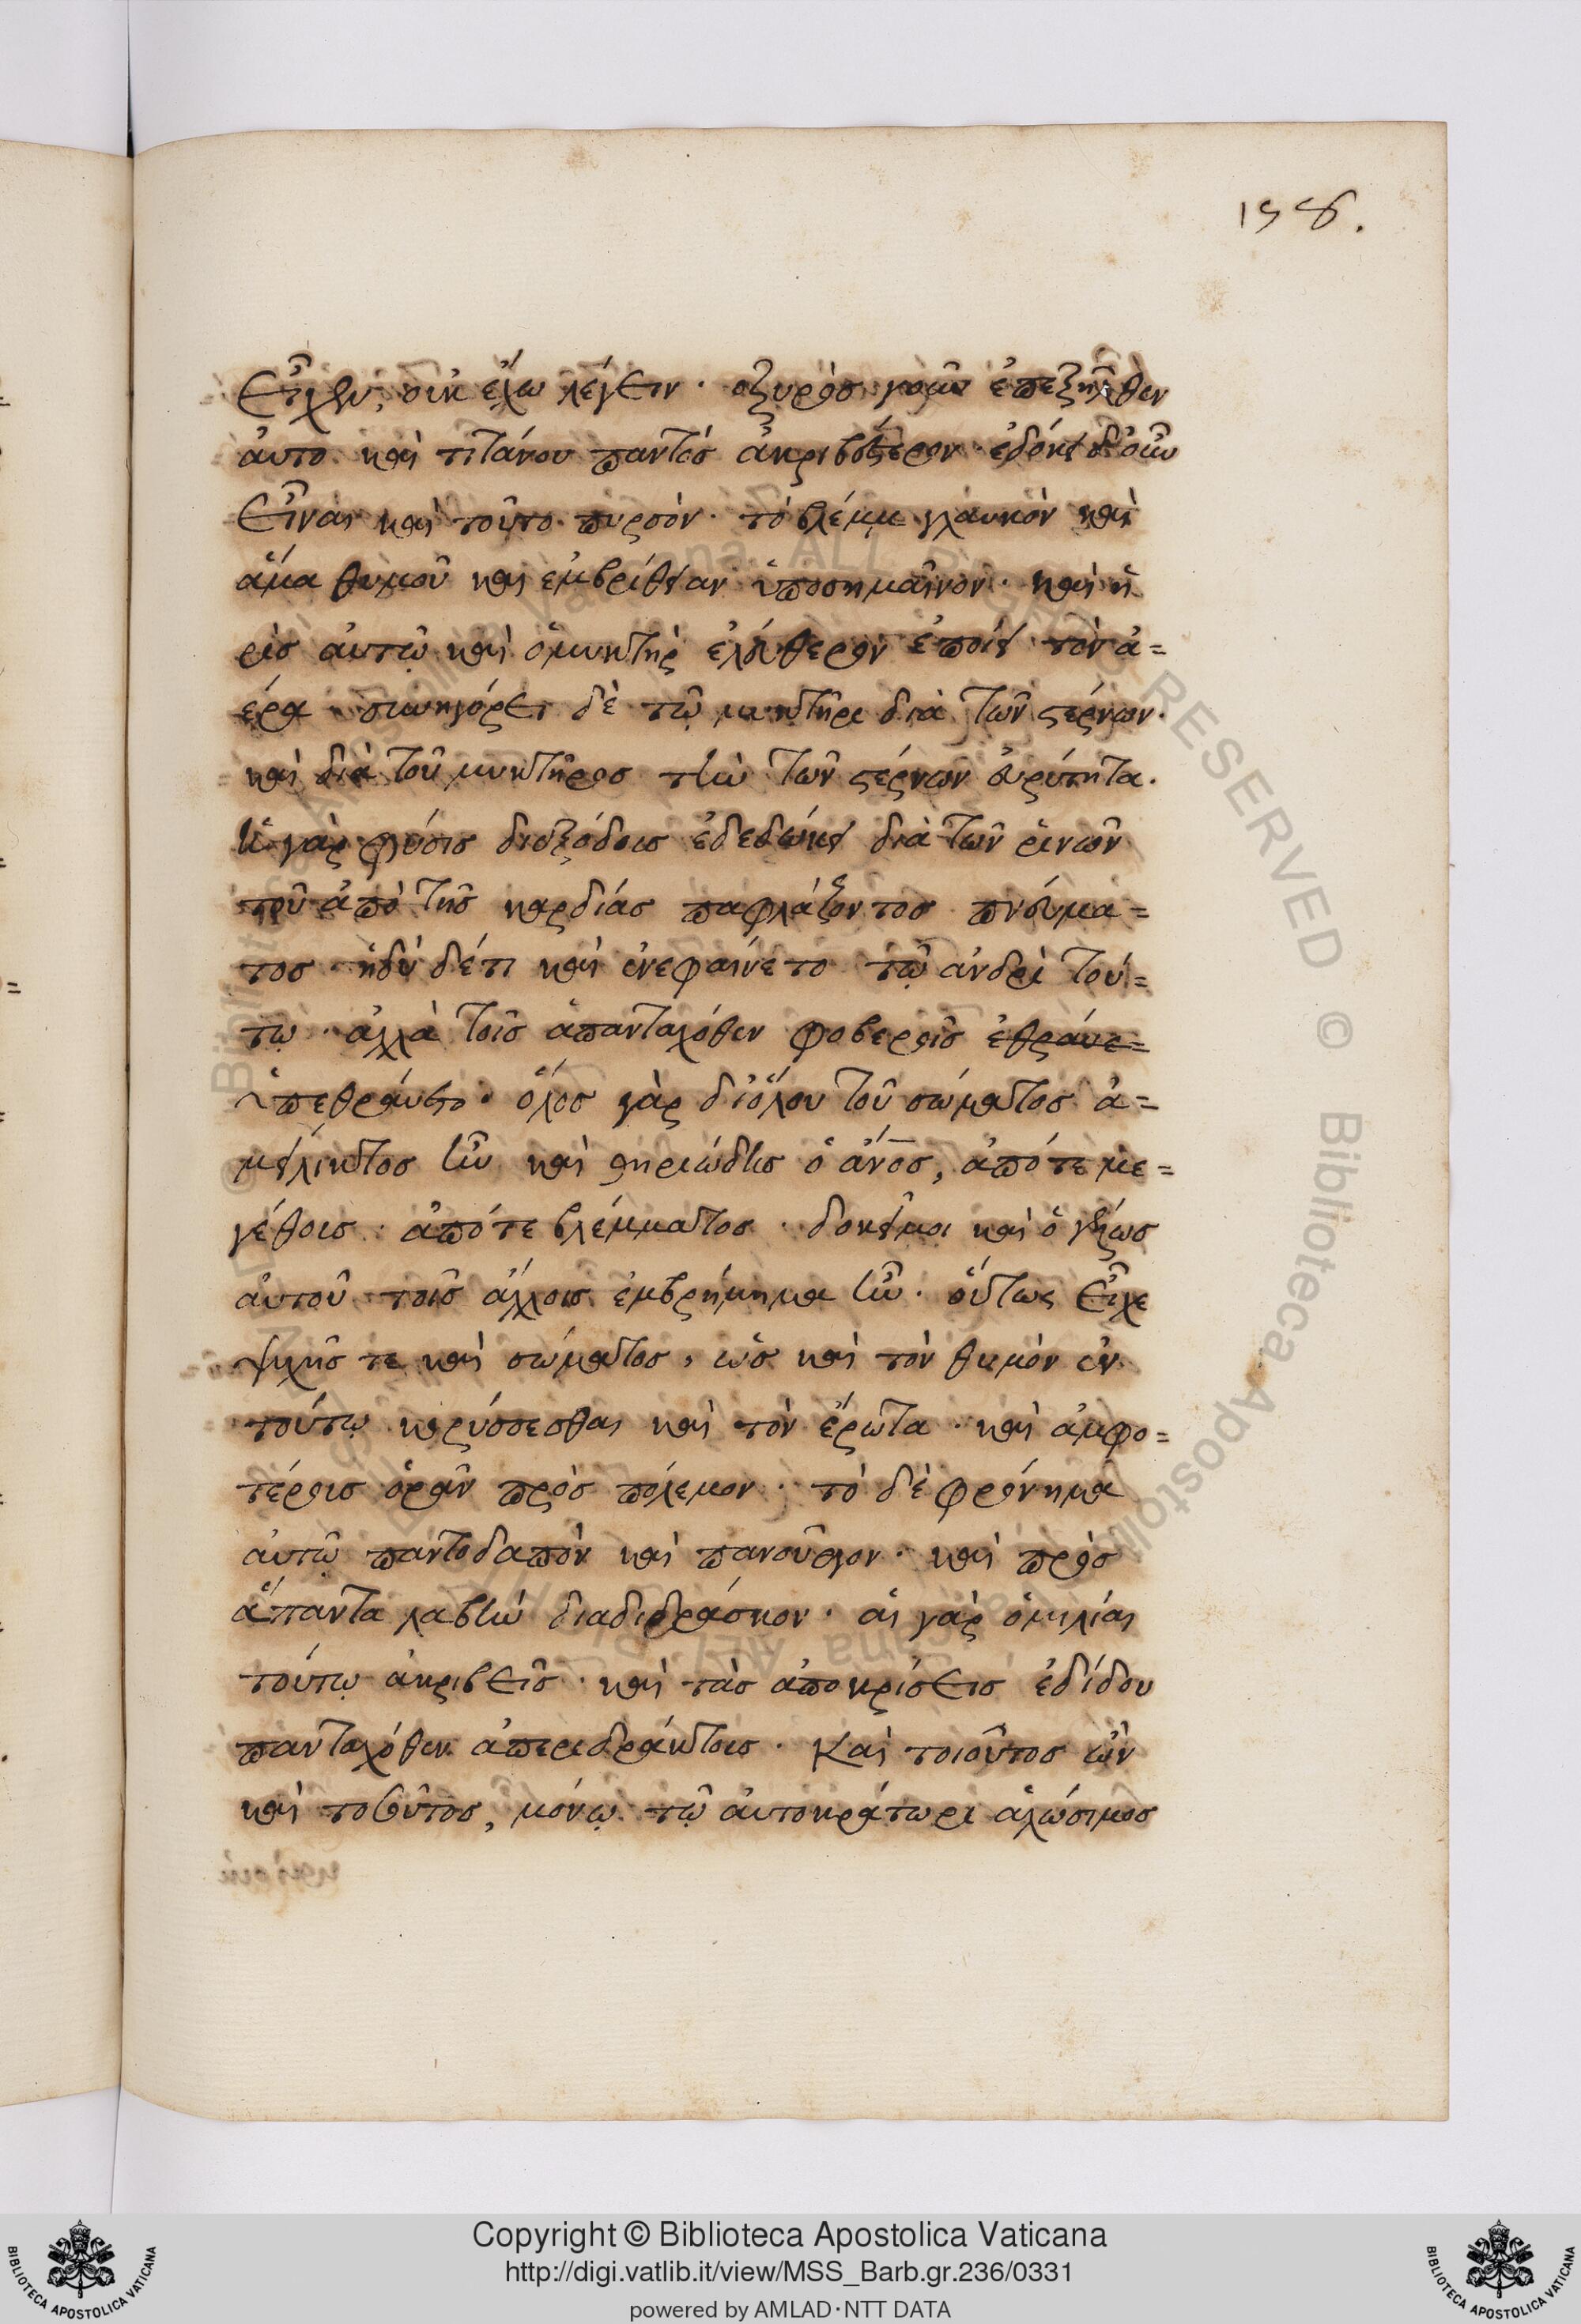 158.
εἶχεν, οὐκ ἔχω λέγειν. ὁ ξυρὸς γοῦν ἐπεξῆλθεν
αὐτο καὶ τιτάνου παντὸς ἀκριβέστερον. ἐδόκει δ' οὖν
εἶναι καὶ τοῦτο πυρσόν. τὸ βλέμμα γλαυκὸν καὶ
ἅμα θυμοῦ καὶ ἐμβρίθειαν ὑποσημαῖνον. καὶ ἡ
ρὶς αὐτῷ καὶ ὁ μυκτὴρ ἐλεύθερον ἐποίει τὸν ἀ=
έρα συνηγόρει δὲ τῷ μυκτῆρι διὰ τῶν στέρνων.
καὶ διὰ τοῦ μυκτῆρος τὴν τῶν στέρνων εὐρύτητα.
ἡ γὰρ φύσις διεξόδους ἐδεδώκει διὰ τῶν ῥινῶν
τοῦ ἀπὸ τῆς καρδίας παφλάζοντος πνεύμα=
τος ἡδὺ δέ τι καὶ ἐνεφαίνετο τῷ ἀνδρὶ τού=
τῳ. ἀλλὰ τοῖς ἁπανταχόθεν φοβεροῖς ἐθράνε=
ὑπεθραύετο. ὅλος γὰρ δι' ὅλου τοῦ σώματος ἀ=
μείλικτος ἦν καὶ θηριώδης ὁ ἄνος, ἀπό τε με=
γέθους. ἀπό τε βλέμματος. δοκεῖ μοι καὶ ὁ γέλως
αὐτοῦ τοῖς ἄλλοις ἐμβρήμημα ἦν. οὕτως εἶχε
ψυχῆς τε καὶ σώματος, ὡς καὶ τὸν θυμὸν ἐν
τούτῳ κορύσσεσθαι καὶ τὸν ἔρωτα. καὶ ἀμφο=
τέροις ὁρᾶν πρὸς πόλεμον. τὸ δὲ φρόνημα
αὐτῷ παντοδαπὸν καὶ πανοῦργον. καὶ πρὸς
ἅπαντα λαβὴν διαδιδράσκον. αἱ γὰρ ὁμιλίαι
τούτῳ ἀκριβεῖς. καὶ τὰς ἀποκρίσεις ἐδίδου
πανταχόθεν ἀπεριδράκτους. Καὶ τοιοῦτος ὢν
καὶ τοσοῦτος, μόνῳ τῷ αὐτοκράτωρι ἁλώσιμος
Copyright © Biblioteca Apostolica Vaticana
http://digi.vatlib.it/view/MSS_Barb.gr.236/0331
powered by AMLAD·NTT DATA
BIBLIOTECA APOSTOLICA VATICANA
BIBLIOTECA APOSTOLICA VATICANA